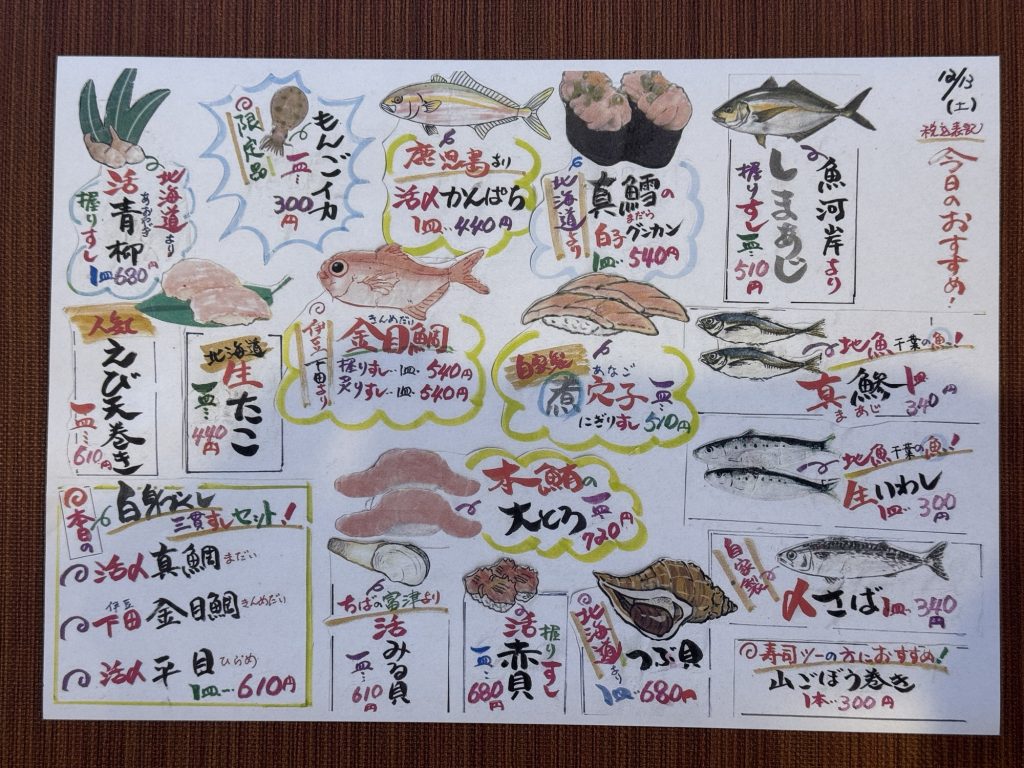 12/13
(土)
税込表記
今日のおすすめ!
魚河岸より
しまあじ
握りすし 一皿… 510円
北海道より
真鱈の
まだら
白子グンカン
1皿… 540円
鹿児島より
活〆かんぱち
1皿… 440円
限定品
もんごイカ
一皿…
300円
北海道より
活青柳
あおやぎ
握りすし
1皿680円
人気
えび天巻き
一皿…610円
北海道
生たこ
一皿…440円
伊豆下田より
きんめだい
金目鯛
握りすし…1皿…540円
炙りすし…1皿…540円
自家製
煮穴子
あなご
にぎりすし
一皿…510円
地魚 千葉の魚!
真鯵
まあじ
1皿…340円
地魚 千葉の魚!
生いわし
1皿…300円
自家製
〆さば 1皿…340円
寿司ツーの方におすすめ!
山ごぼう巻き
1本…300円
本鮪の
大とろ 一皿…720円
本日の
白身づくし
三貫すしセット!
活〆真鯛 まだい
伊豆
下田 金目鯛 きんめだい
活〆平目 ひらめ
1皿… 610円
ちばの富津より
活みる貝
一皿…610円
活赤貝
握りすし
一皿…680円
北海道より
つぶ貝
1皿…680円